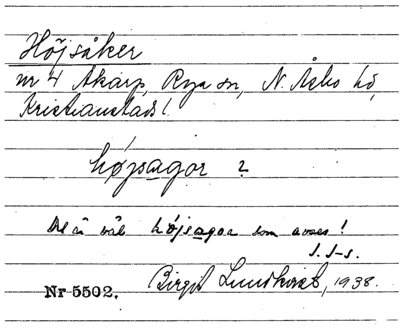 Höjsåker
nr 4 Åkarp, Rya sn, N. Åsbo hd,
Kristianstads l.
højsagor ?
Det är väl højsagor som avses!
J. J-s.
Birgit Lundkvist, 1938.
Nr 5502.